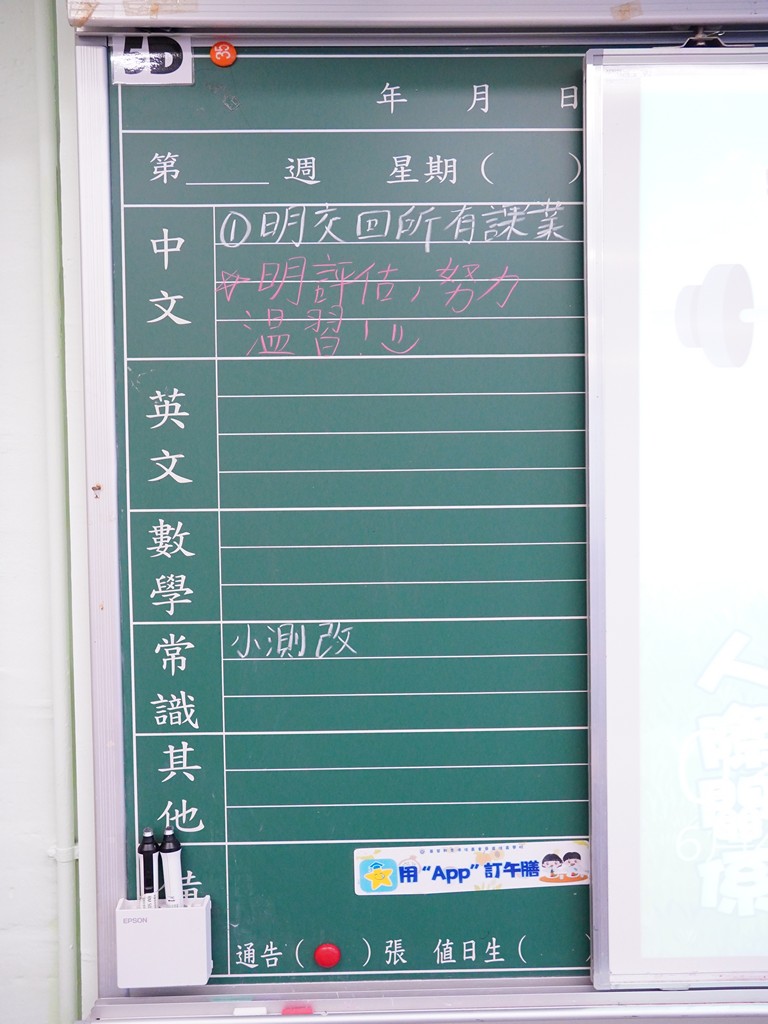 5D
35
年 月 日
第____週 星期( )
中文
①明交回所有課業
☆明評估,努力
溫習!
英文
數學
常識
小測改
其他
備
EPSON
用“App”訂午膳
通告( )張 值日生(
人際關係